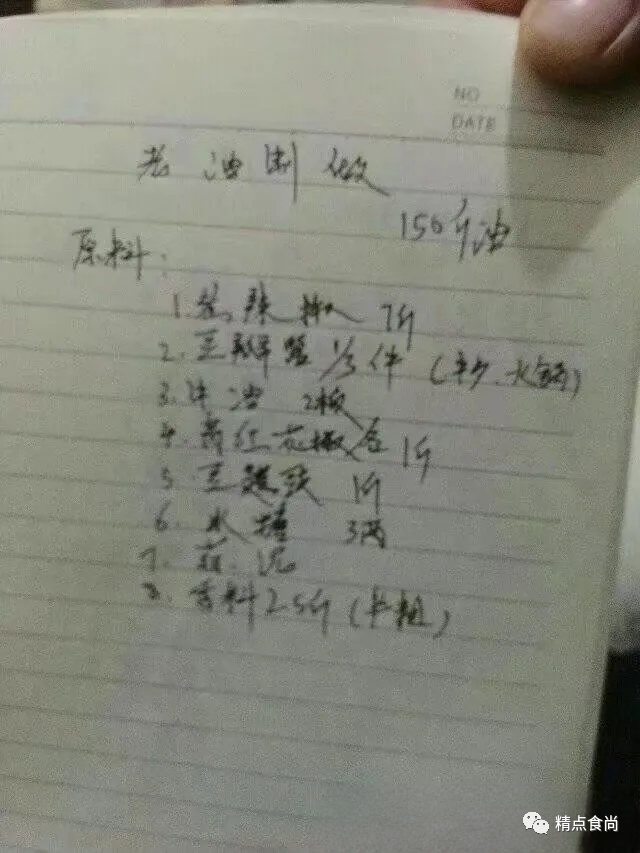 NO
DATE
老油制做
150斤油
原料:
1. 辣椒 7斤
2. 豆瓣酱 1/3件 (火锅)
3. 牛油 2板
4. 青红花椒各1斤
5. 豆豉 1斤
6. 冰糖 3两
7. 泥
8. 香料2.5斤 (粗)
精点食尚